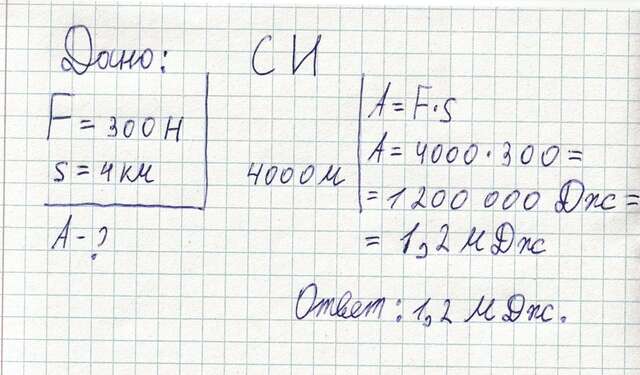 Дано:
СИ
F = 300 Н
s = 4 км
A - ?
4000 м
A = F · s
A = 4000 · 300 =
= 1 200 000 Дж =
= 1,2 МДж
Ответ: 1,2 МДж.